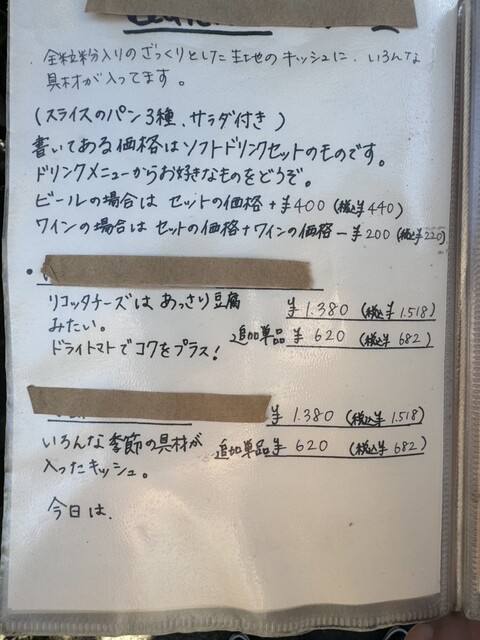 全粒粉入りのざっくりとした生地のキッシュに、いろんな
具材が入ってます。
(スライスのパン3種、サラダ付き)
書いてある価格はソフトドリンクセットのものです。
ドリンクメニューからお好きなものをどうぞ。
ビールの場合は セットの価格+¥400 (税込¥440)
ワインの場合は セットの価格+ワインの価格-¥200 (税込¥220)
リコッタチーズは あっさり豆腐
みたい。
ドライトマトでコクをプラス!
¥1.380 (税込¥1.518)
追加単品 ¥620 (税込¥682)
¥1.380 (税込¥1.518)
いろんな季節の具材が
入ったキッシュ。
追加単品¥620 (税込¥682)
今日は、